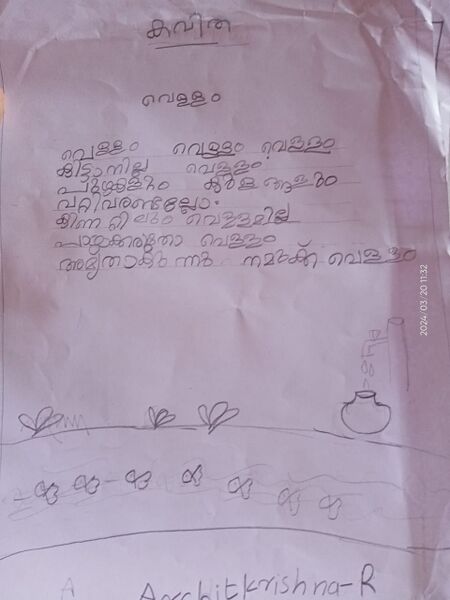 കവിത
വെള്ളം
വെള്ളം വെള്ളം വെള്ളം
കിട്ടാനില്ല വെള്ളം
പുഴകളും കുളങ്ങളും
വറ്റിവരണ്ടല്ലോ.
കിണറ്റിലും വെള്ളമില്ല
പാഴാക്കരുതാ വെള്ളം
അമൃതാകുന്നു നമുക്ക് വെള്ളം
A Architkrishna-R
2024/03/20 11:32